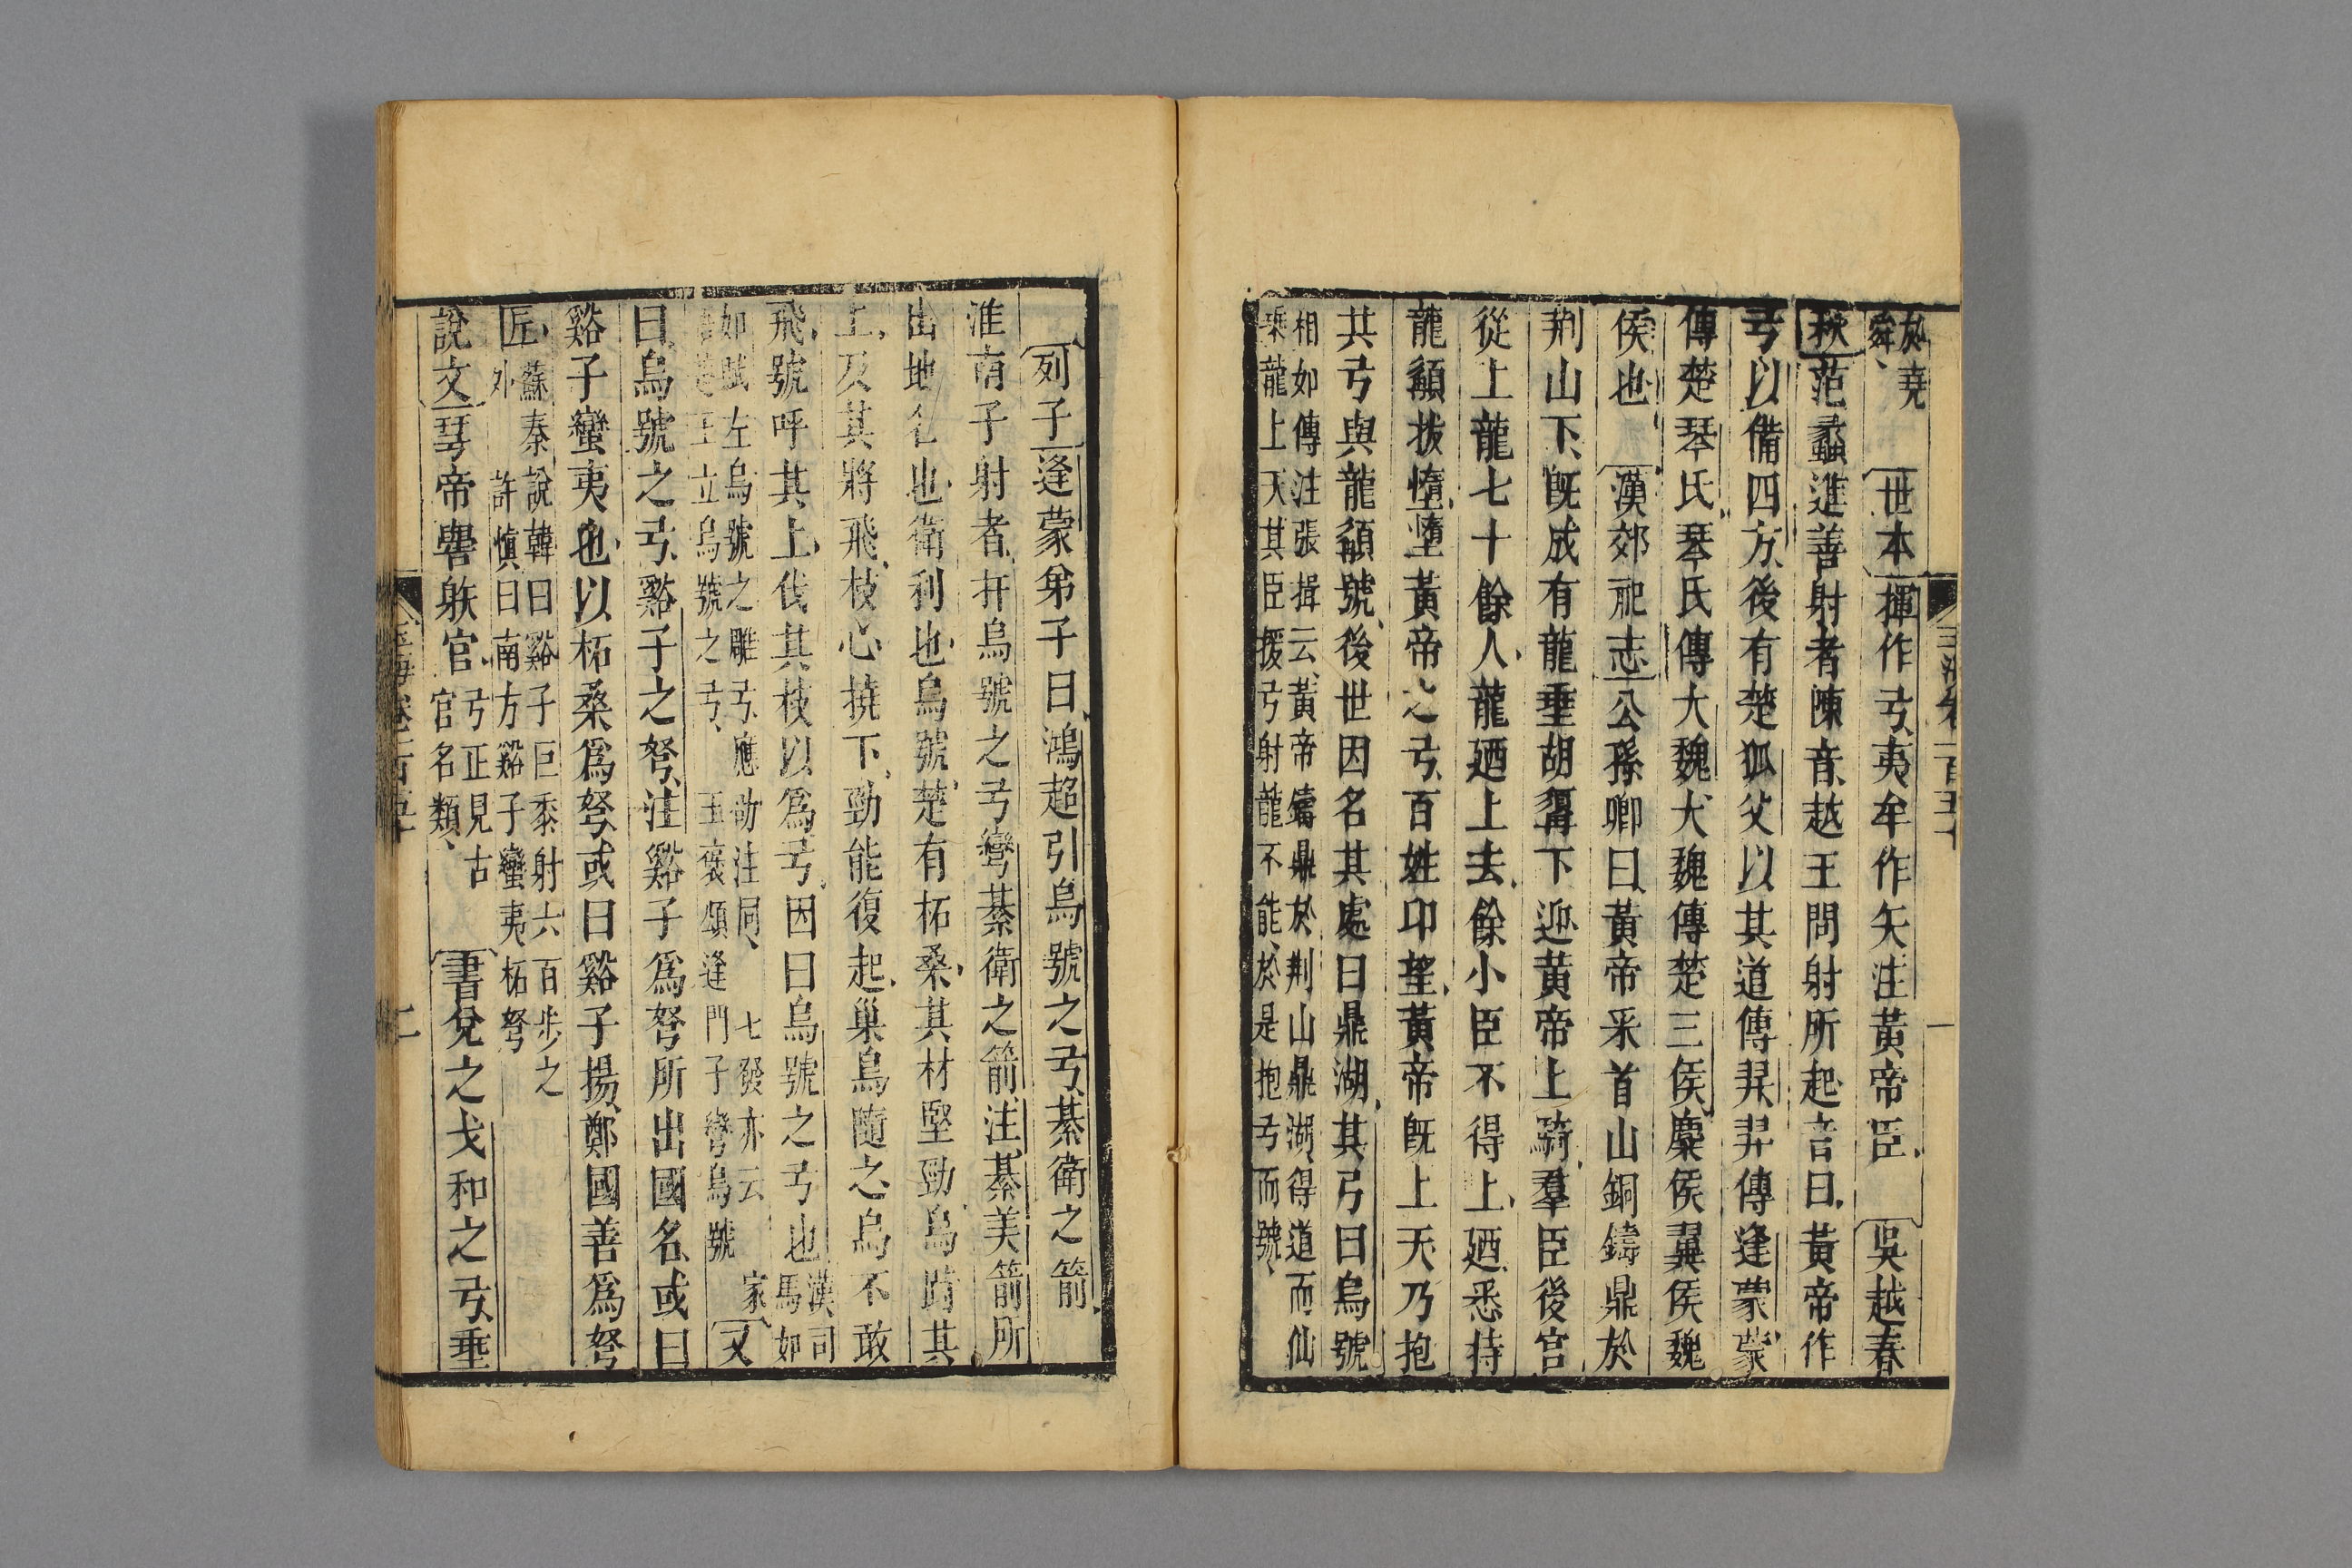 於堯
舜 世本揮作弓夷牟作矢注黃帝臣 吳越春
秋范蠡進善射者陳音越王問射所起音曰黃帝作
弓以備四方後有楚狐父以其道傳羿羿傳逢蒙蒙
傳楚琴氏琴氏傳大魏大魏傳楚三侯麋侯翼侯魏
侯也 漢郊祀志公孫卿曰黃帝采首山銅鑄鼎於
荆山下既成有龍垂胡䫇下迎黃帝上騎羣臣後宮
從上龍七十餘人龍廼上去餘小臣不得上廼悉持
龍䫇拔墮墮黃帝之弓百姓卬望黃帝既上天乃抱
其弓與龍䫇號後世因名其處曰鼎湖其弓曰烏號
相如傳注張揖云黃帝鑄鼎於荆山鼎湖得道而仙
乘龍上天其臣援弓射龍不能於是抱弓而號
玉海卷一百五十
一
列子逢蒙弟子曰鴻超引烏號之弓綦衛之箭
淮南子射者扞烏號之弓彎綦衛之箭注綦美箭所
出地名也衛利也烏號楚有柘桑其材堅勁烏跱其
上及其將飛枝必橈下勁能復起巢烏隨之烏不敢
飛號呼其上伐其枝以爲弓因曰烏號之弓也 漢司馬如
如賦左烏號之雕弓應劭注同 七發亦云
立烏號之弓 王襃頌逢門子彎烏號 家 又
曰烏號之弓谿子之弩注谿子爲弩所出國名或曰
谿子蠻夷也以柘桑爲弩或曰谿子揚鄭國善爲弩
匠 蘇秦說韓曰谿子巨黍射六百步之
外 許慎曰南方谿子蠻夷柘弩
說文弓帝嚳躲官 弓正見古
官名類 書兌之戈和之弓垂
玉海卷一百五十
二